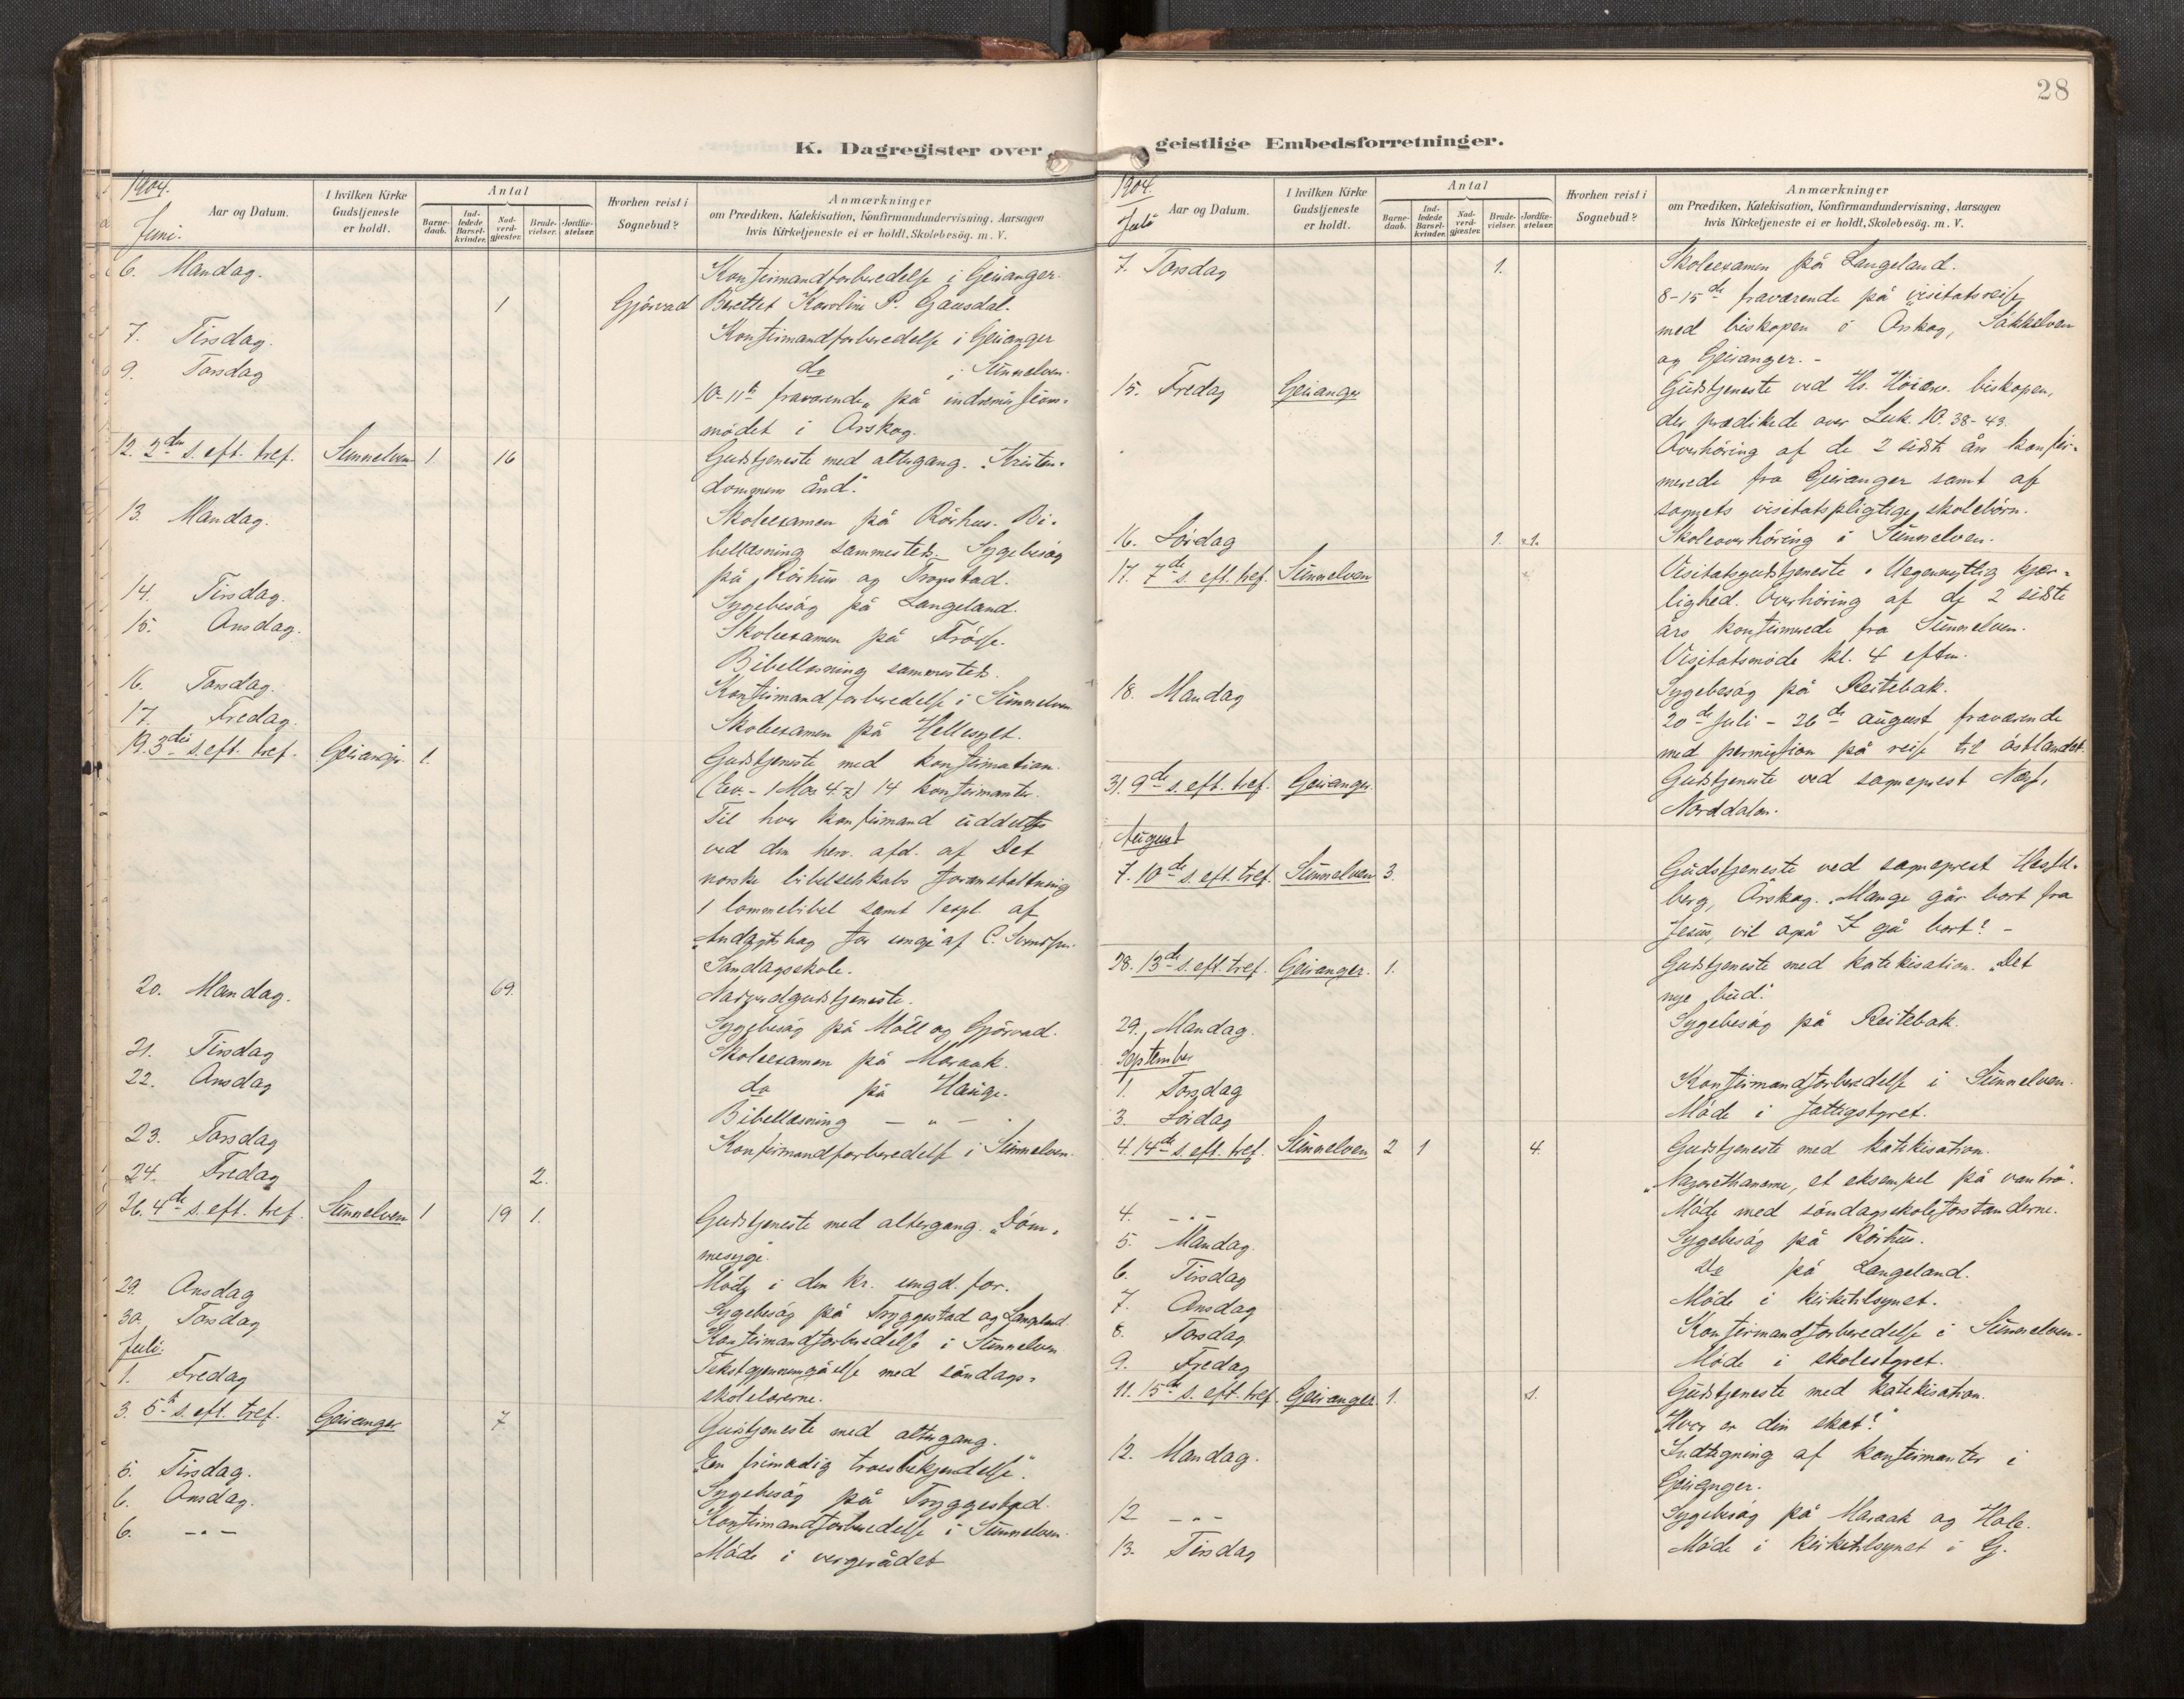 28
K. Dagregister over
geistlige Embedsforretninger.
1904.
Juni.
Aar og Datum.
I hvilken Kirke Gudstjeneste er holdt.
Antal
Barne-daab.
Ind-ledede Barsel-kvinder.
Nad-verd-gjæster.
Brude-vielser.
Jordfæ-stelser.
Hvorhen reist i Sognebud?
Anmærkninger
om Prædiken, Katekisation, Konfirmandundervisning, Aarsagen
hvis Kirketjeneste ei er holdt, Skolebesög. m. V.
6. Mandag. Konfirmandforberedelse i Geiranger.
1 Gjörvad Berettet Karoline P. Gausdal.
7. Tirsdag. Konfirmandforberedelse i Geiranger
9. Torsdag do i Sunnelven.
10-11te fraværende på indremission-
mödet i Ørskog.
12. 2den s. eft. tref. Sunnelven 1. 16 Gudstjeneste med altergang. "Kristen-
dommens ånd."
13. Mandag. Skoleexamen på Rörhus. Bi-
bellæsning sammesteds. Sygebesög
på Rörhus og Tronstad.
14. Tirsdag. Sygebesög på Langeland.
15. Onsdag. Skoleexamen på
Bibellæsning sammesteds.
16. Torsdag. Konfirmandforberedelse i Sunnelven
17. Fredag. Skoleexamen på Hellesylt.
19. 3die s. eft. tref. Geiranger 1. Gudstjeneste med konfirmation.
14 konfirmanter.
Til hver konfirmand uddeltes
ved den herv. afd. af Det
norske bibelselskabs foranstaltning
1 lommebibel samt 1 expl. af
"Andagtsbog for unge" af C.
Söndagsskole.
20. Mandag. 69. Nadverdgudstjeneste.
Sygebesög på Möll og Gjörvad.
21. Tirsdag Skoleexamen på Maraak.
22. Onsdag do på Hauge.
Bibellæsning - " -
23. Torsdag Konfirmandforberedelse i Sunnelven.
24. Fredag 2.
26. 4de s. eft. tref. Sunnelven 1 19 1. Gudstjeneste med altergang. "Döm-
mesyge."
29. Onsdag Möde i den kr. ungd. for.
30. Torsdag Sygebesög på Tryggestad og Langeland.
Juli. Konfirmandforberedelse i Sunnelven
1. Fredag Tekstgjennemgåelse med söndags-
skolelærerne.
3. 5te s. eft. tref. Geiranger 7 Gudstjeneste med altergang.
"En frimodig troesbekjendelse".
5. Tirsdag. Sygebesög på Tryggestad.
6. Onsdag. Konfirmandforberedelse i Sunnelven.
6. - " - Möde i vergerådet
1904.
Juli
Aar og Datum.
I hvilken Kirke Gudstjeneste er holdt.
Antal
Barne-daab.
Ind-ledede Barsel-kvinder.
Nad-verd-gjæster.
Brude-vielser.
Jordfæ-stelser.
Hvorhen reist i Sognebud?
Anmærkninger
om Prædiken, Katekisation, Konfirmandundervisning, Aarsagen
hvis Kirketjeneste ei er holdt, Skolebesög. m. V.
7. Torsdag 1. Skoleexamen på Langeland.
8-15de fraværende på visitatsreise
med biskopen i Ørskog, Søkkelven
og Geiranger. -
15. Fredag Geiranger Gudstjeneste ved Hs. Höiærv. biskopen,
der prædikede over Luk. 10. 38-43.
Overhöring af de 2 sidste års konfir-
merede fra Geiranger samt af
sognets visitatspligtige skolebörn.
16. Lördag 1. 1. Skoleoverhöring i Sunnelven.
17. 7de s. eft. tref. Sunnelven Visitatsgudstjeneste. Uegennyttig kjær-
lighed. Overhöring af de 2 sidste
års konfirmerede fra Sunnelven.
Visitatsmöde kl. 4 eftm.
18. Mandag Sygebesög på Reitebak.
20de Juli - 26de august fraværende
med permission på reise til östlandet.
31. 9de s. eft. tref. Geiranger. Gudstjeneste ved sogneprest
Norddalen.
August
7. 10de s. eft. tref. Sunnelven 3. Gudstjeneste ved sogneprest
berg, Ørskog. "Mange går bort fra
Jesus, vil også I gå bort? -
28. 13de s. eft. tref. Geiranger. 1. Gudstjeneste med katekisation. "Det
nye bud."
29. Mandag. Sygebesög på Reitebak.
September
1. Torsdag Konfirmandforberedelse i Sunnelven.
3. Lördag Möde i fattigstyret.
4. 14de s. eft. tref. Sunnelven 2 1 4. Gudstjeneste med katekisation.
"Nazarethanerne, et eksempel på vantro".
4. - " - Möde med söndagsskoleforstanderne.
5. Mandag. Sygebesög på Rörhus.
6. Tirsdag do på Langeland.
7. Onsdag Möde i kirketilsynet.
8. Torsdag Konfirmandforberedelse i Sunnelven.
9. Fredag Möde i skolestyret.
11. 15de s. eft. tref. Geiranger. 1. 1. Gudstjeneste med katekisation.
"Hvor er din skat?"
12. Mandag. Indtegning af konfirmanter i
Geiranger.
12 - " - Sygebesög på Maraak og Hole.
13. Tirsdag Möde i kirketilsynet i G.